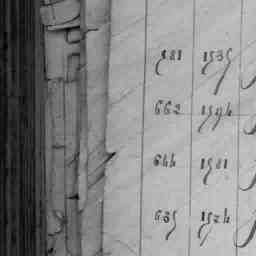 581 1535
662 1594
644 1581
635 1524